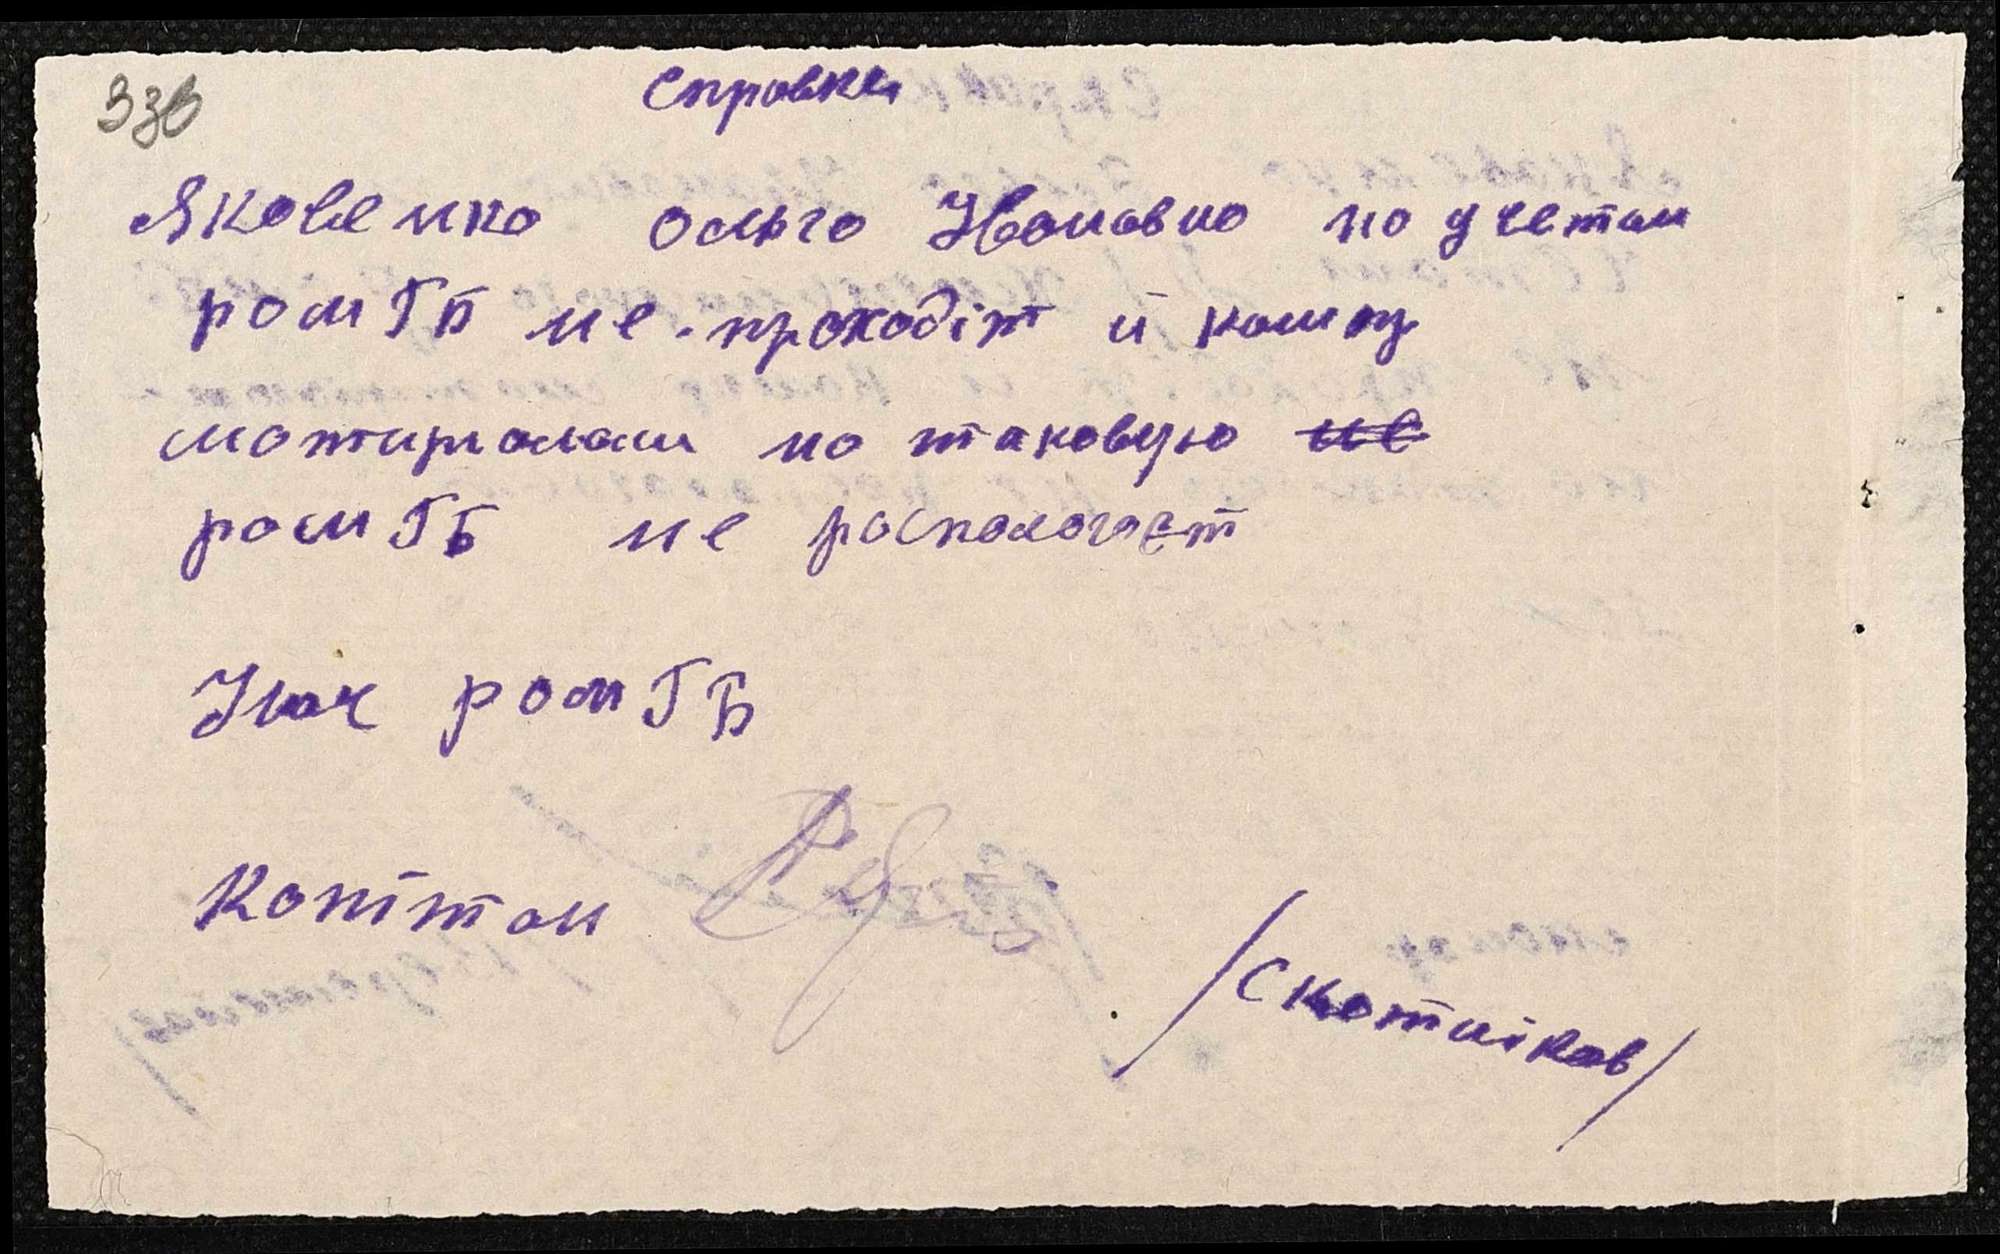 330
Справка
Яковенко Ольга Ивановна по учетам
роМГБ не проходіт и комп
матириалам на таковую не
роМГБ не распологает
Нач роМГБ
Капітан
/Скотніков/